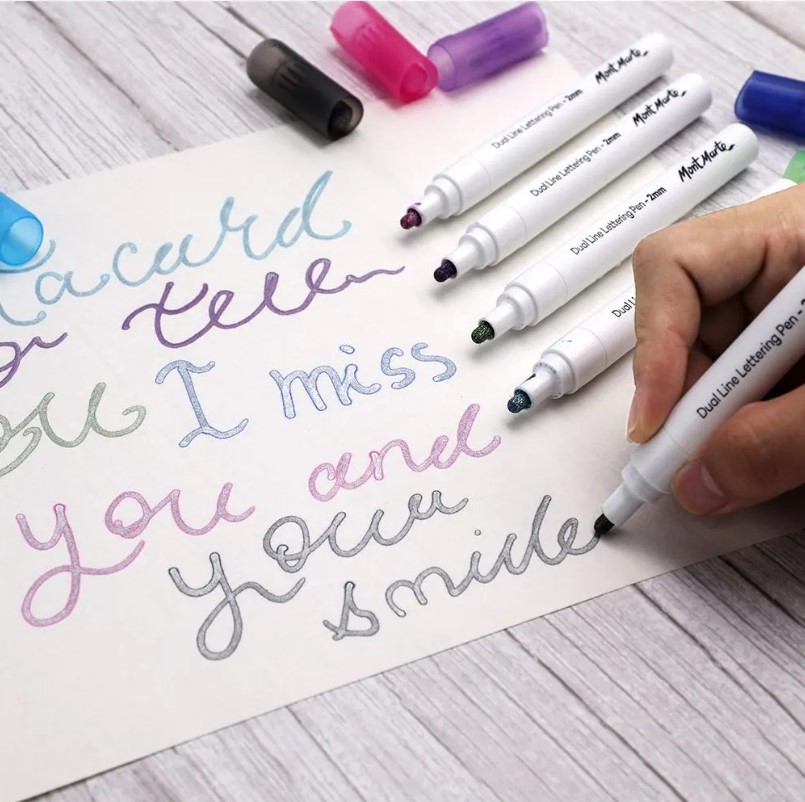 tell
I miss
you and
your
smile
Dual Line Lettering Pen - 2mm Mont Marte
Dual Line Lettering Pen - 2mm Mont Marte
Dual Line Lettering Pen - 2mm Mont Marte
Dual Li
Dual Line Lettering Pen -